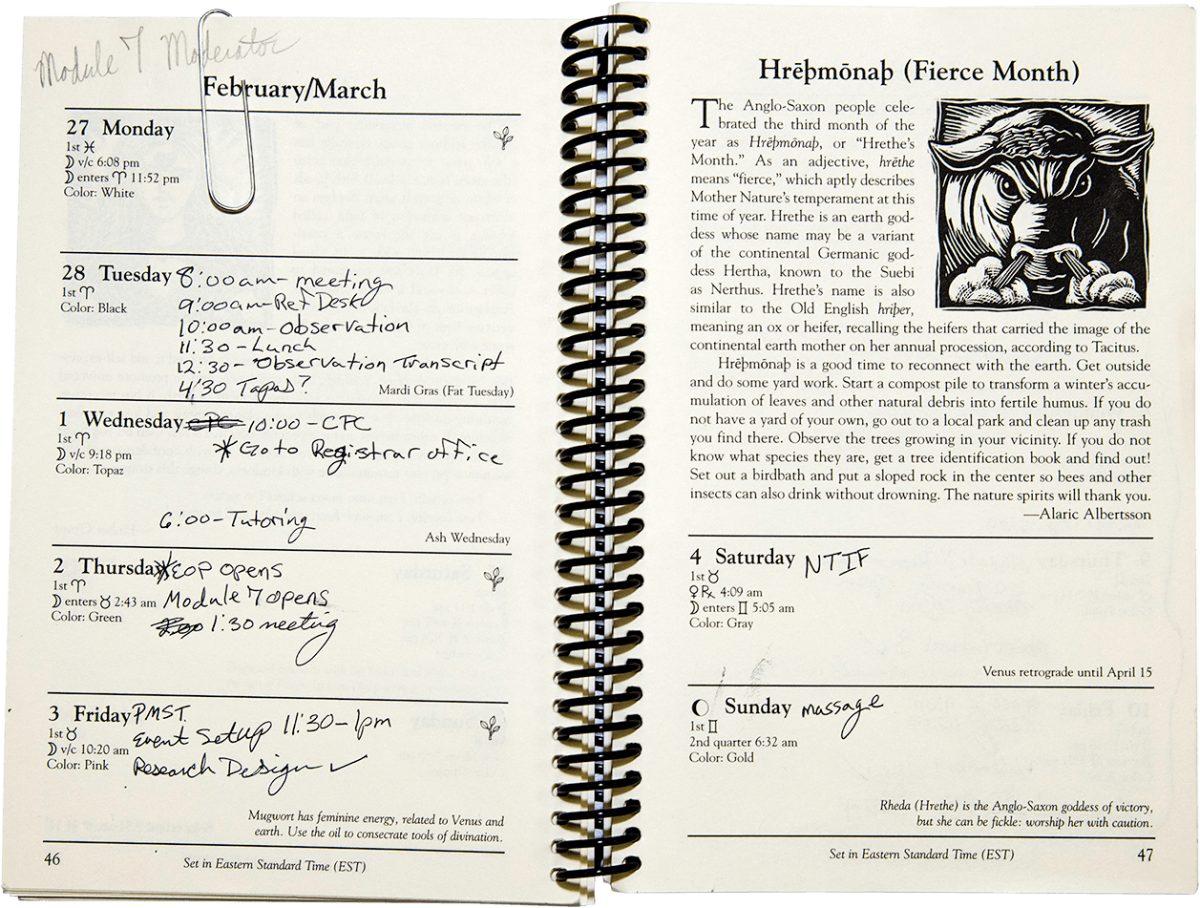 Module 7 Moderator
February/March
27 Monday
1st ♓
☽ v/c 6:08 pm
☽ enters ♈ 11:52 pm
Color: White
28 Tuesday 8:00am-meeting
1st ♈
Color: Black
9:00am-Ref Desk
10:00am-Observation
11:30-Lunch
12:30-Observation Transcript
4:30 Tapas?
Mardi Gras (Fat Tuesday)
1 Wednesday CPC 10:00-CPC
1st ♈
☽ v/c 9:18 pm
Color: Topaz
*Go to Registrar office
6:00-Tutoring
Ash Wednesday
2 Thursday *EOP opens
1st ♈
☽ enters ♉ 2:43 am
Color: Green
Module 7 opens
1:30 meeting
3 Friday PMST
1st ♉
☽ v/c 10:20 am
Color: Pink
Event Setup 11:30-1pm
Research Design ✓
Mugwort has feminine energy, related to Venus and
earth. Use the oil to consecrate tools of divination.
46
Set in Eastern Standard Time (EST)
Hrēþmōnaþ (Fierce Month)
The Anglo-Saxon people cele-
brated the third month of the
year as Hrēþmōnaþ, or “Hrethe’s
Month.” As an adjective, hrēthe
means “fierce,” which aptly describes
Mother Nature’s temperament at this
time of year. Hrethe is an earth god-
dess whose name may be a variant
of the continental Germanic god-
dess Hertha, known to the Suebi
as Nerthus. Hrethe’s name is also
similar to the Old English hriþer,
meaning an ox or heifer, recalling the heifers that carried the image of the
continental earth mother on her annual procession, according to Tacitus.
Hrēþmōnaþ is a good time to reconnect with the earth. Get outside
and do some yard work. Start a compost pile to transform a winter’s accu-
mulation of leaves and other natural debris into fertile humus. If you do
not have a yard of your own, go out to a local park and clean up any trash
you find there. Observe the trees growing in your vicinity. If you do not
know what species they are, get a tree identification book and find out!
Set out a birdbath and put a sloped rock in the center so bees and other
insects can also drink without drowning. The nature spirits will thank you.
—Alaric Albertsson
4 Saturday NTIF
1st ♉
♀℞ 4:09 am
☽ enters ♊ 5:05 am
Color: Gray
Venus retrograde until April 15
Sunday massage
1st ♊
2nd quarter 6:32 am
Color: Gold
Rheda (Hrethe) is the Anglo-Saxon goddess of victory,
but she can be fickle: worship her with caution.
Set in Eastern Standard Time (EST)
47